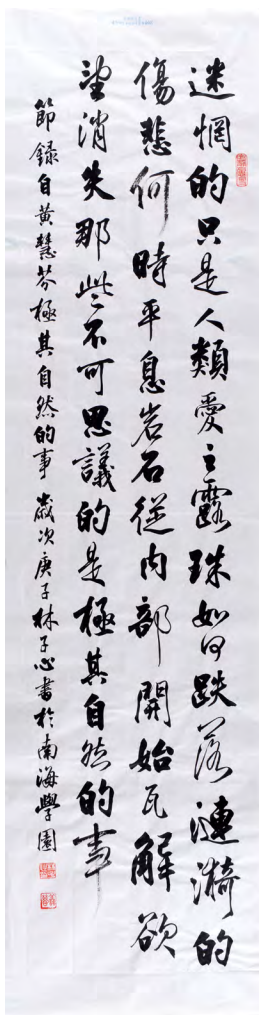 迷惘的只是人類愛之露珠如何跌落漣漪的
傷悲何時平息岩石從內部開始瓦解欲
望消失那些不可思議的是極其自然的事
節錄自黃慧芬極其自然的事 歲次庚子林子心書於南海學園